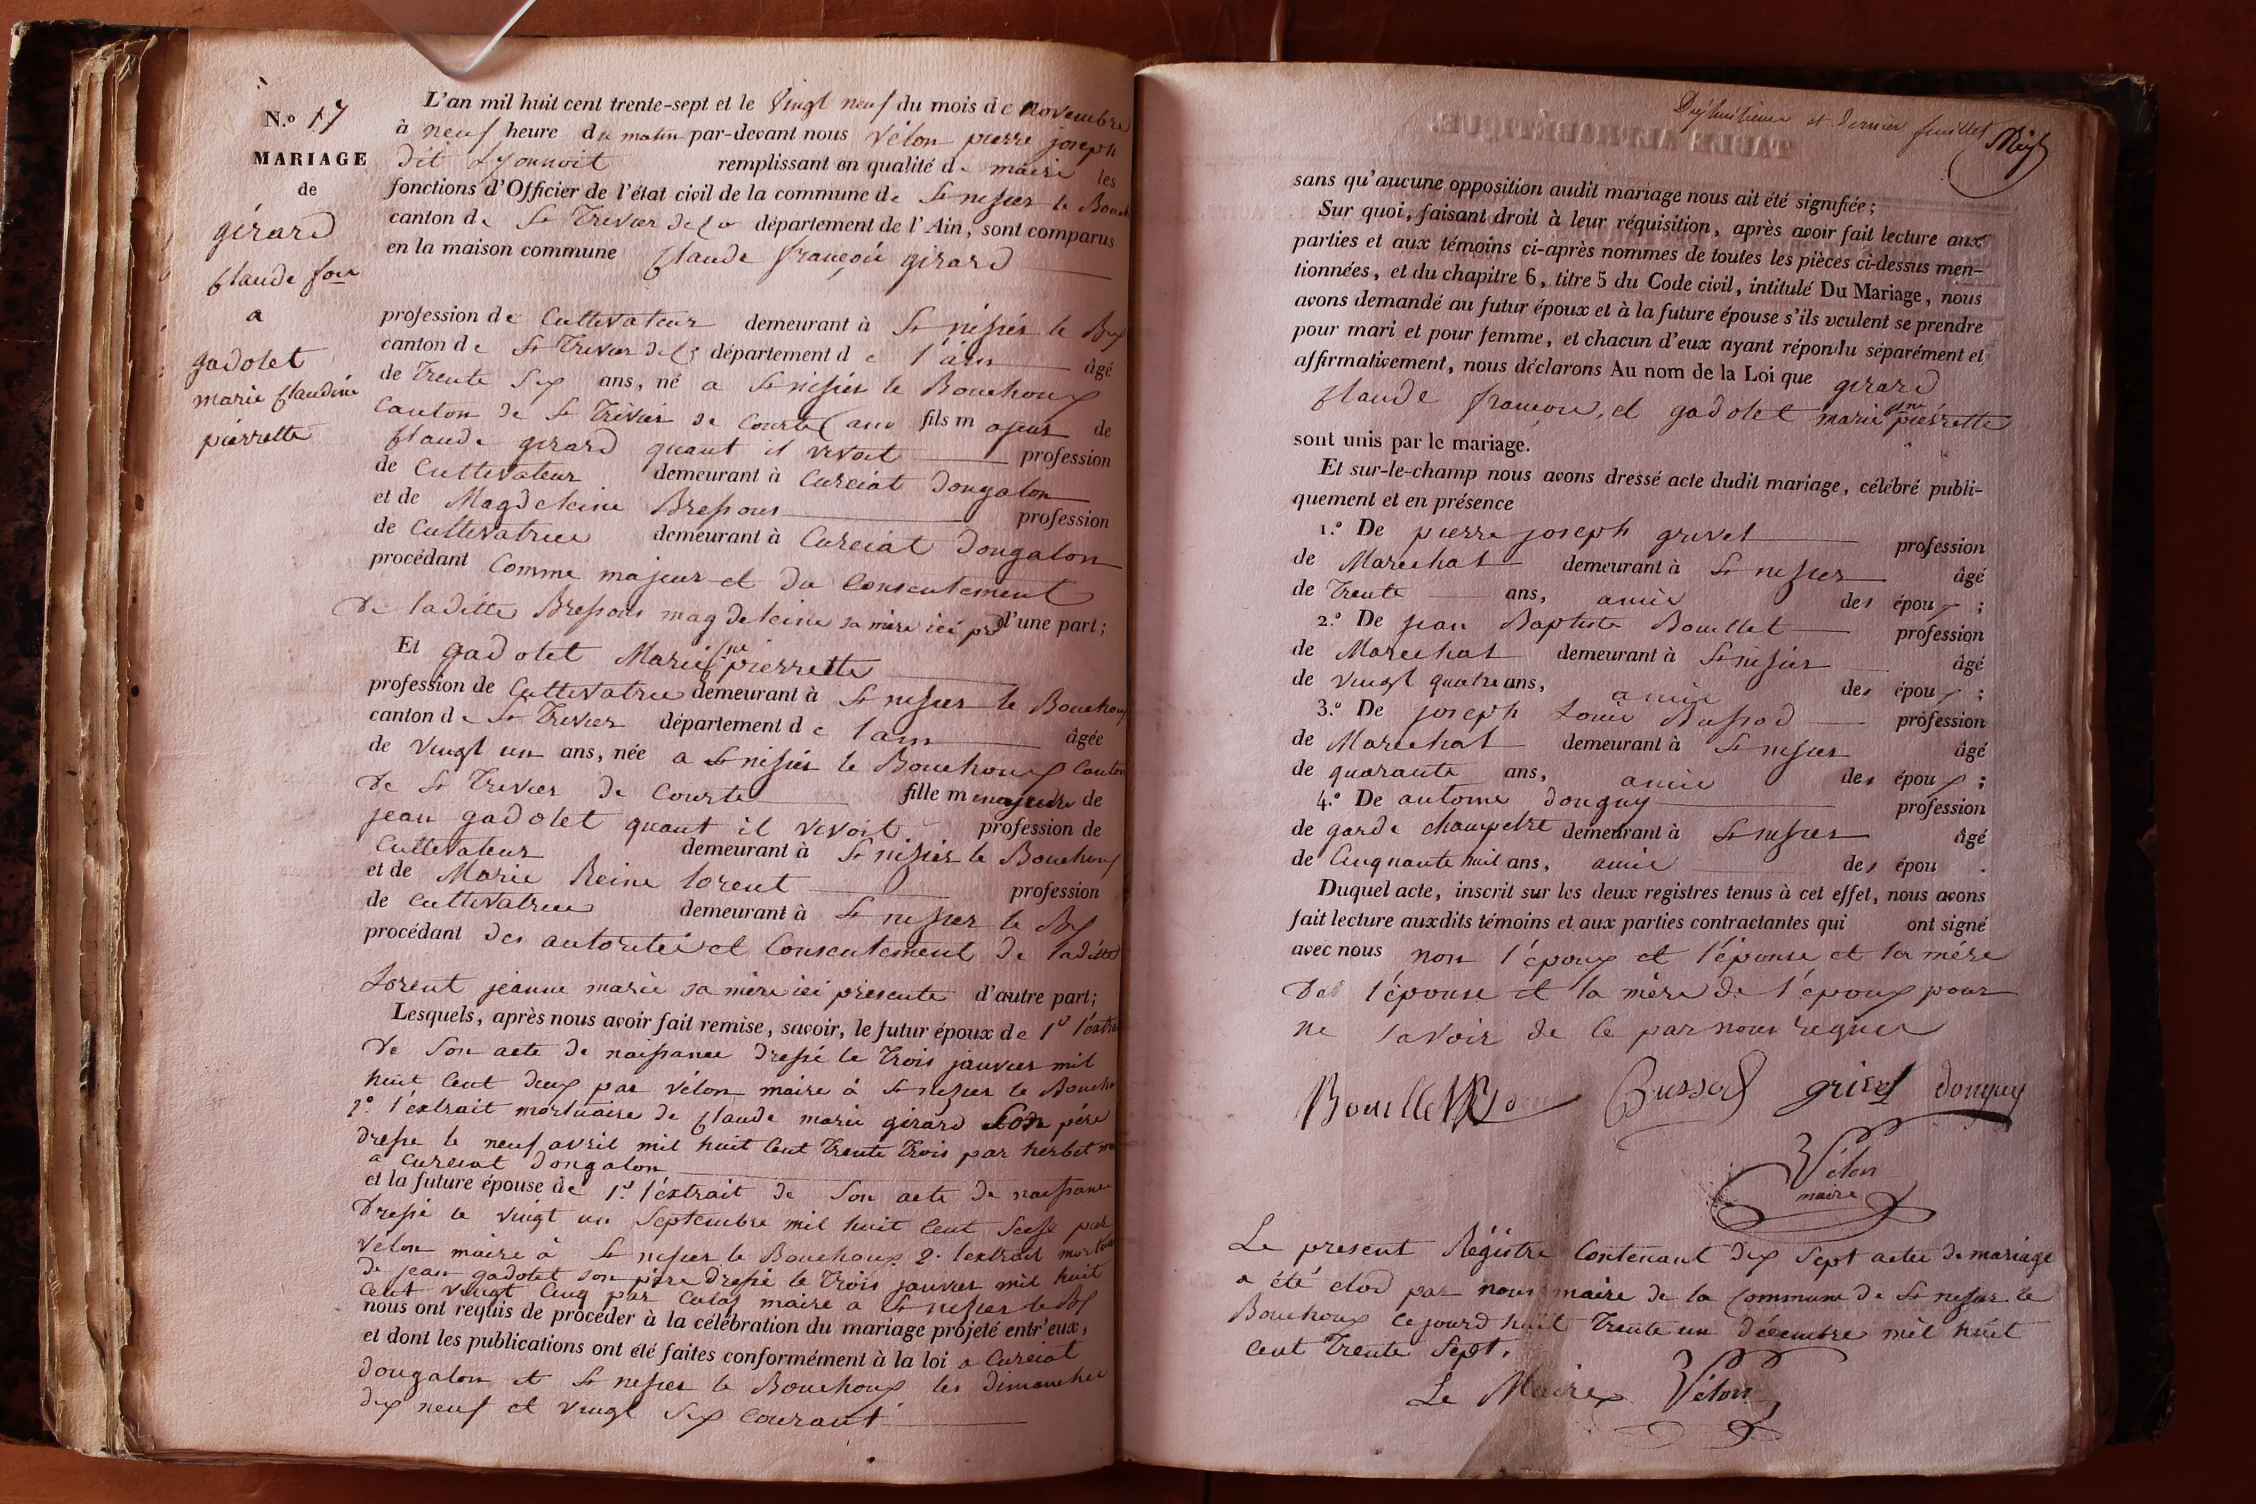 N.º 17
MARIAGE
de
girard
Claude fois
a
gadolet
marie Claudine
pierrette
L'an mil huit cent trente-sept et le vingt neuf du mois de novembre
à neuf heure du matin par-devant nous Vélon pierre joseph
dit Lyonnoit remplissant en qualité de maire les
fonctions d'Officier de l'état civil de la commune de St nisier le Bouch
canton de St Trivier de Co département de l'Ain, sont comparus
en la maison commune Claude françois girard
profession de Cultivateur demeurant à St nisier le Bux
canton de St Trivier de Cs département de l'ain âgé
de Trente Six ans, né a St nisier le Bouchoux
Canton de St Trivier de Courte ans fils majeur de
Claude girard quant il vivoit profession
de Cultivateur demeurant à Curciat dongalon
et de Magdeleine Bressous profession
de Cultivatrice demeurant à Curciat Dongalon
procédant Comme majeur et du Consentement
de laditte Bressous magdeleine sa mère ici pr d'une part;
Et gadolet Marie Cne pierrette
profession de Cultivatrice demeurant à St nisier le Bouchoux
canton de St Trivier département de l'ain âgée
de vingt un ans, née a St nisier le Bouchoux Canton
de St Trivier de Courte fille majeure de
jean gadolet quant il vivoit profession de
Cultivateur demeurant à St nisier le Bouchoux
et de Marie Reine lorent profession
de Cultivatrice demeurant à St nisier le Bx
procédant des autoritée et Consentement de laditte
Lorent jeanne marie sa mère ici présente d'autre part;
Lesquels, après nous avoir fait remise, savoir, le futur époux de 1º l'extrai
de Son acte de naissance dressé le Trois janvier mil
huit Cent deux par vélon maire à St nisier le Boucho
2º l'extrait mortuaire de Claude marie girard Son père
dressé le neuf avril mil huit Cent Trente Trois par herbet
a Curciat dongalon
et la future épouse de 1º l'extrait de Son acte de naissance
dressé le vingt un Septembre mil huit Cent Seise par
vélon maire à St nisier le Bouchoux 2º l'extrait mortu
de jean gadolet son père dressé le Trois janvier mil huit
Cent vingt Cinq par maire a St nisier le Bx
nous ont requis de procéder à la célébration du mariage projeté entr'eux,
et dont les publications ont été faites conformément à la loi a Curciat
dongalon et St nisier le Bouchoux les dimanches
dix neuf et vingt Six Courant
Dixhuitième et dernier feuillet
sans qu'aucune opposition audit mariage nous ait été signifiée;
Sur quoi, faisant droit à leur réquisition, après avoir fait lecture aux
parties et aux témoins ci-après nommes de toutes les pièces ci-dessus men-
tionnées, et du chapitre 6, titre 5 du Code civil, intitulé Du Mariage, nous
avons demandé au futur époux et à la future épouse s'ils veulent se prendre
pour mari et pour femme, et chacun d'eux ayant répondu séparément et
affirmativement, nous déclarons Au nom de la Loi que girard
Claude françois, et gadolet marie Cne pierrette
sont unis par le mariage.
Et sur-le-champ nous avons dressé acte dudit mariage, célébré publi-
quement et en présence
1.º De pierre joseph grivet profession
de Marechal demeurant à St nisier âgé
de Trente ans, amie des époux;
2.º De jean Baptiste Bouillet profession
de Marechal demeurant à St nisier âgé
de vingt quatre ans, amie des époux;
3.º De joseph Louis Bussod profession
de Marechal demeurant à St nisier âgé
de quarante ans, amie des époux;
4.º De antoine donguy profession
de garde champetre demeurant à St nisier âgé
de Cinquante huit ans, amie des épou.
Duquel acte, inscrit sur les deux registres tenus à cet effet, nous avons
fait lecture auxdits témoins et aux parties contractantes qui ont signé
avec nous non l'époux et l'épouse et la mère
de l'épouse et la mère de l'époux pour
ne Savoir de Ce par nous requis
Bouillet Bussod grivet donguy
Vélon
maire
Le present Régistre Contenant dix Sept actes de mariage
a été clos par nous maire de la Commune de St nisier le
Bouchoux Cejourd huit Trente un décembre mil huit
Cent Trente Sept.
Le Maire Vélon